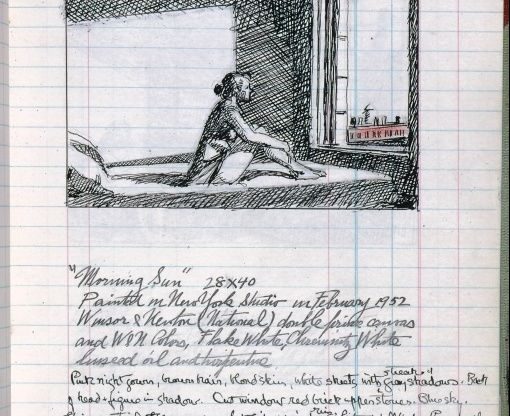 "Morning Sun" 28X40
Painted in New York Studio in February 1952
Winsor & Newton (National) double prime canvas
and W&N Colors, Flake White, Cremnitz White
linseed oil and turpentine
Pink night gown, brown hair, blond skin, white sheets with grey shadows. Back
of head & figure in shadow. Out window red brick upper stories. Blue sky.